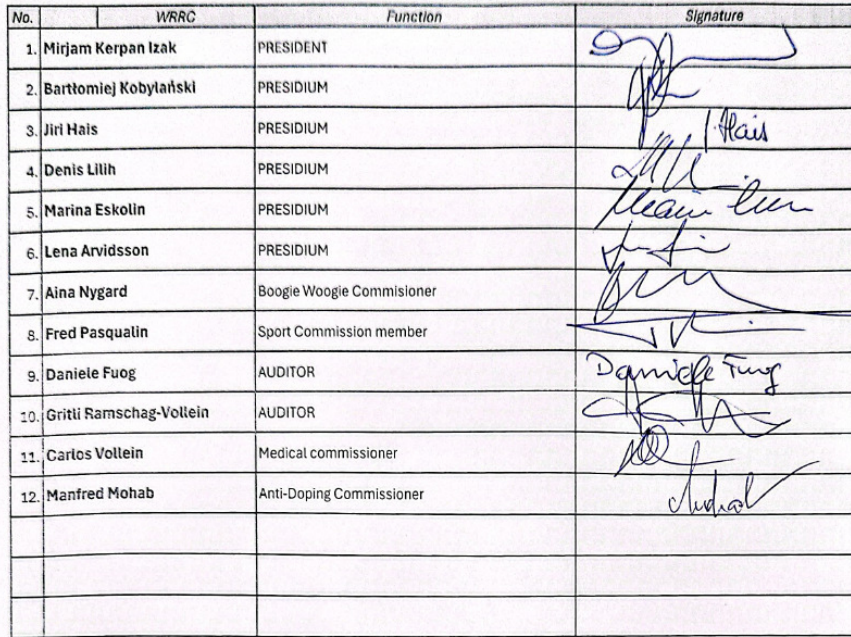 No. WRRC Function Signature
1. Mirjam Kerpan Izak PRESIDENT
2. Bartłomiej Kobylański PRESIDIUM
3. Jiri Hais PRESIDIUM J. Hais
4. Denis Lilih PRESIDIUM
5. Marina Eskolin PRESIDIUM
6. Lena Arvidsson PRESIDIUM
7. Aina Nygard Boogie Woogie Commisioner
8. Fred Pasqualin Sport Commission member
9. Daniele Fuog AUDITOR Daniele Fuog
10. Gritli Ramschag-Vollein AUDITOR
11. Carlos Vollein Medical commissioner
12. Manfred Mohab Anti-Doping Commissioner